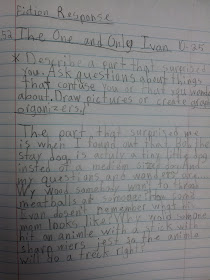 Fiction Response
The One and Only Ivan D-25
* Describe a part that surprised
you. Ask questions about things
that confuse you or that you wonder
about. Draw pictures or create graphic
organizers!
The part that surprised me
is when I found out that Bob the
stay dog is actully a tiny dog
insted of a mediem sized
my questions and wonders are
Why woud somebody want to
meatballs of someone? Why
Ivan dosent remember what his
mom looks like? Why would someone
hit an animle with a stick with
sharp just so the animle
will do a trick right